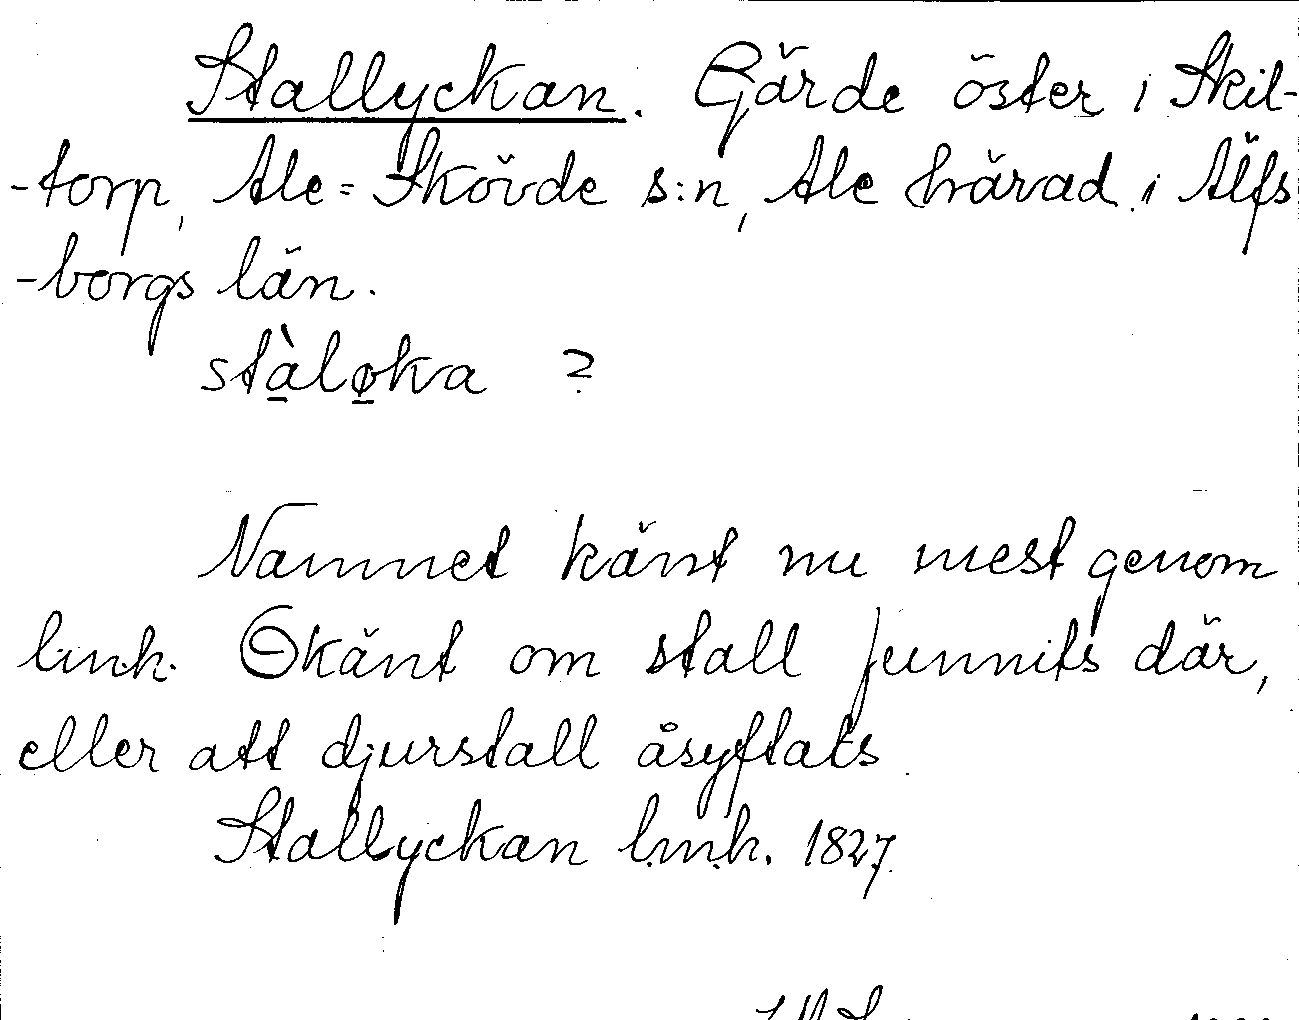 Stallyckan. Gärde öster i Skil-
-torp, Ale-Skövde s:n, Ale härad i Älfs
-borgs län.
stàløka ?
Namnet känt nu mest genom
lmh. Okänt om stall funnits där,
eller att djurstall åsyftats
Stallyckan l.m.h. 1827.